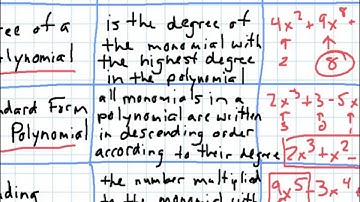 ee of a
olynomial
is the degree of
the monomial with
the highest degree
in the polynomial
4x² + 9x⁸ +
2 8
ndard Form
Polynomial
all monomials in a
polynomial are written
in descending order
according to their degree
2x³ + 3 - 5x
3
2x³ + x² -
ding
the number multiplied
to the monomial with
9x⁵ - 3x⁴